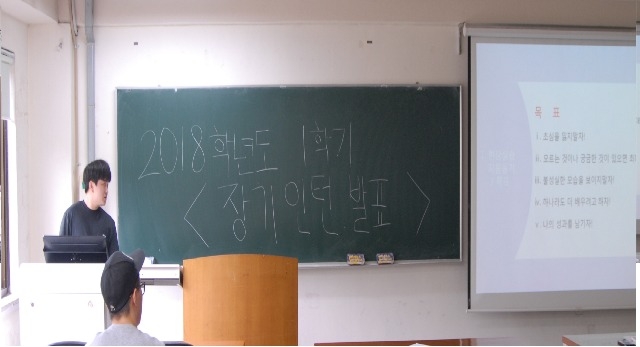 2018학년도 1학기
<장기인턴 발표>
목 표
i. 초심을 잃지말자!
ii. 모르는 것이나 궁금한 것이 있으면 회
iii. 불성실한 모습을 보이지말자!
iv. 하나라도 더 배우려고 하자!
v. 나의 성과를 남기자!